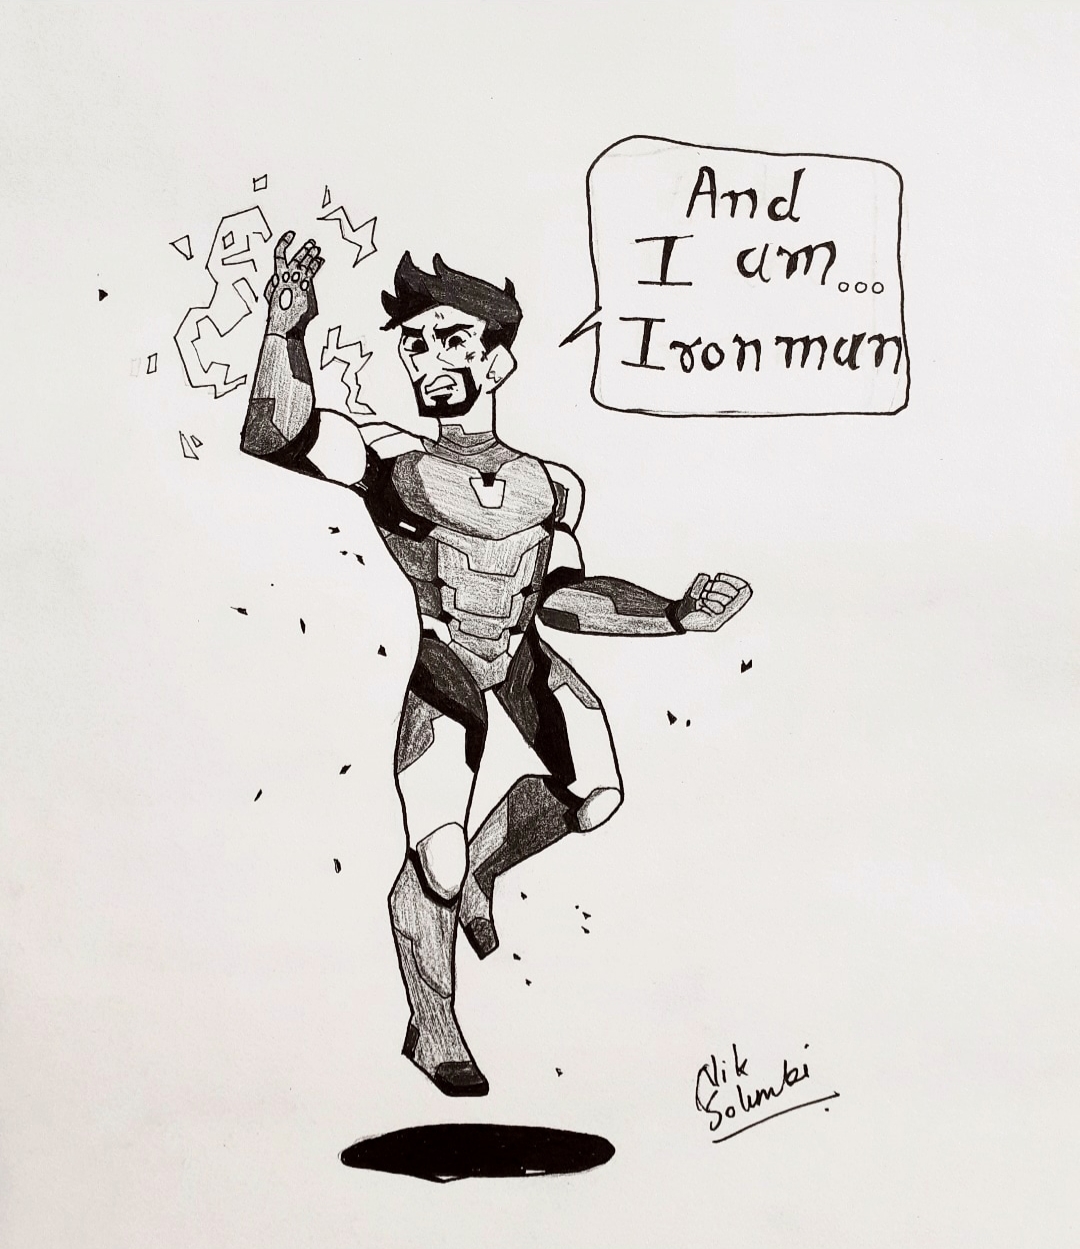 And
I am...
Ironman
Nik
Solunki